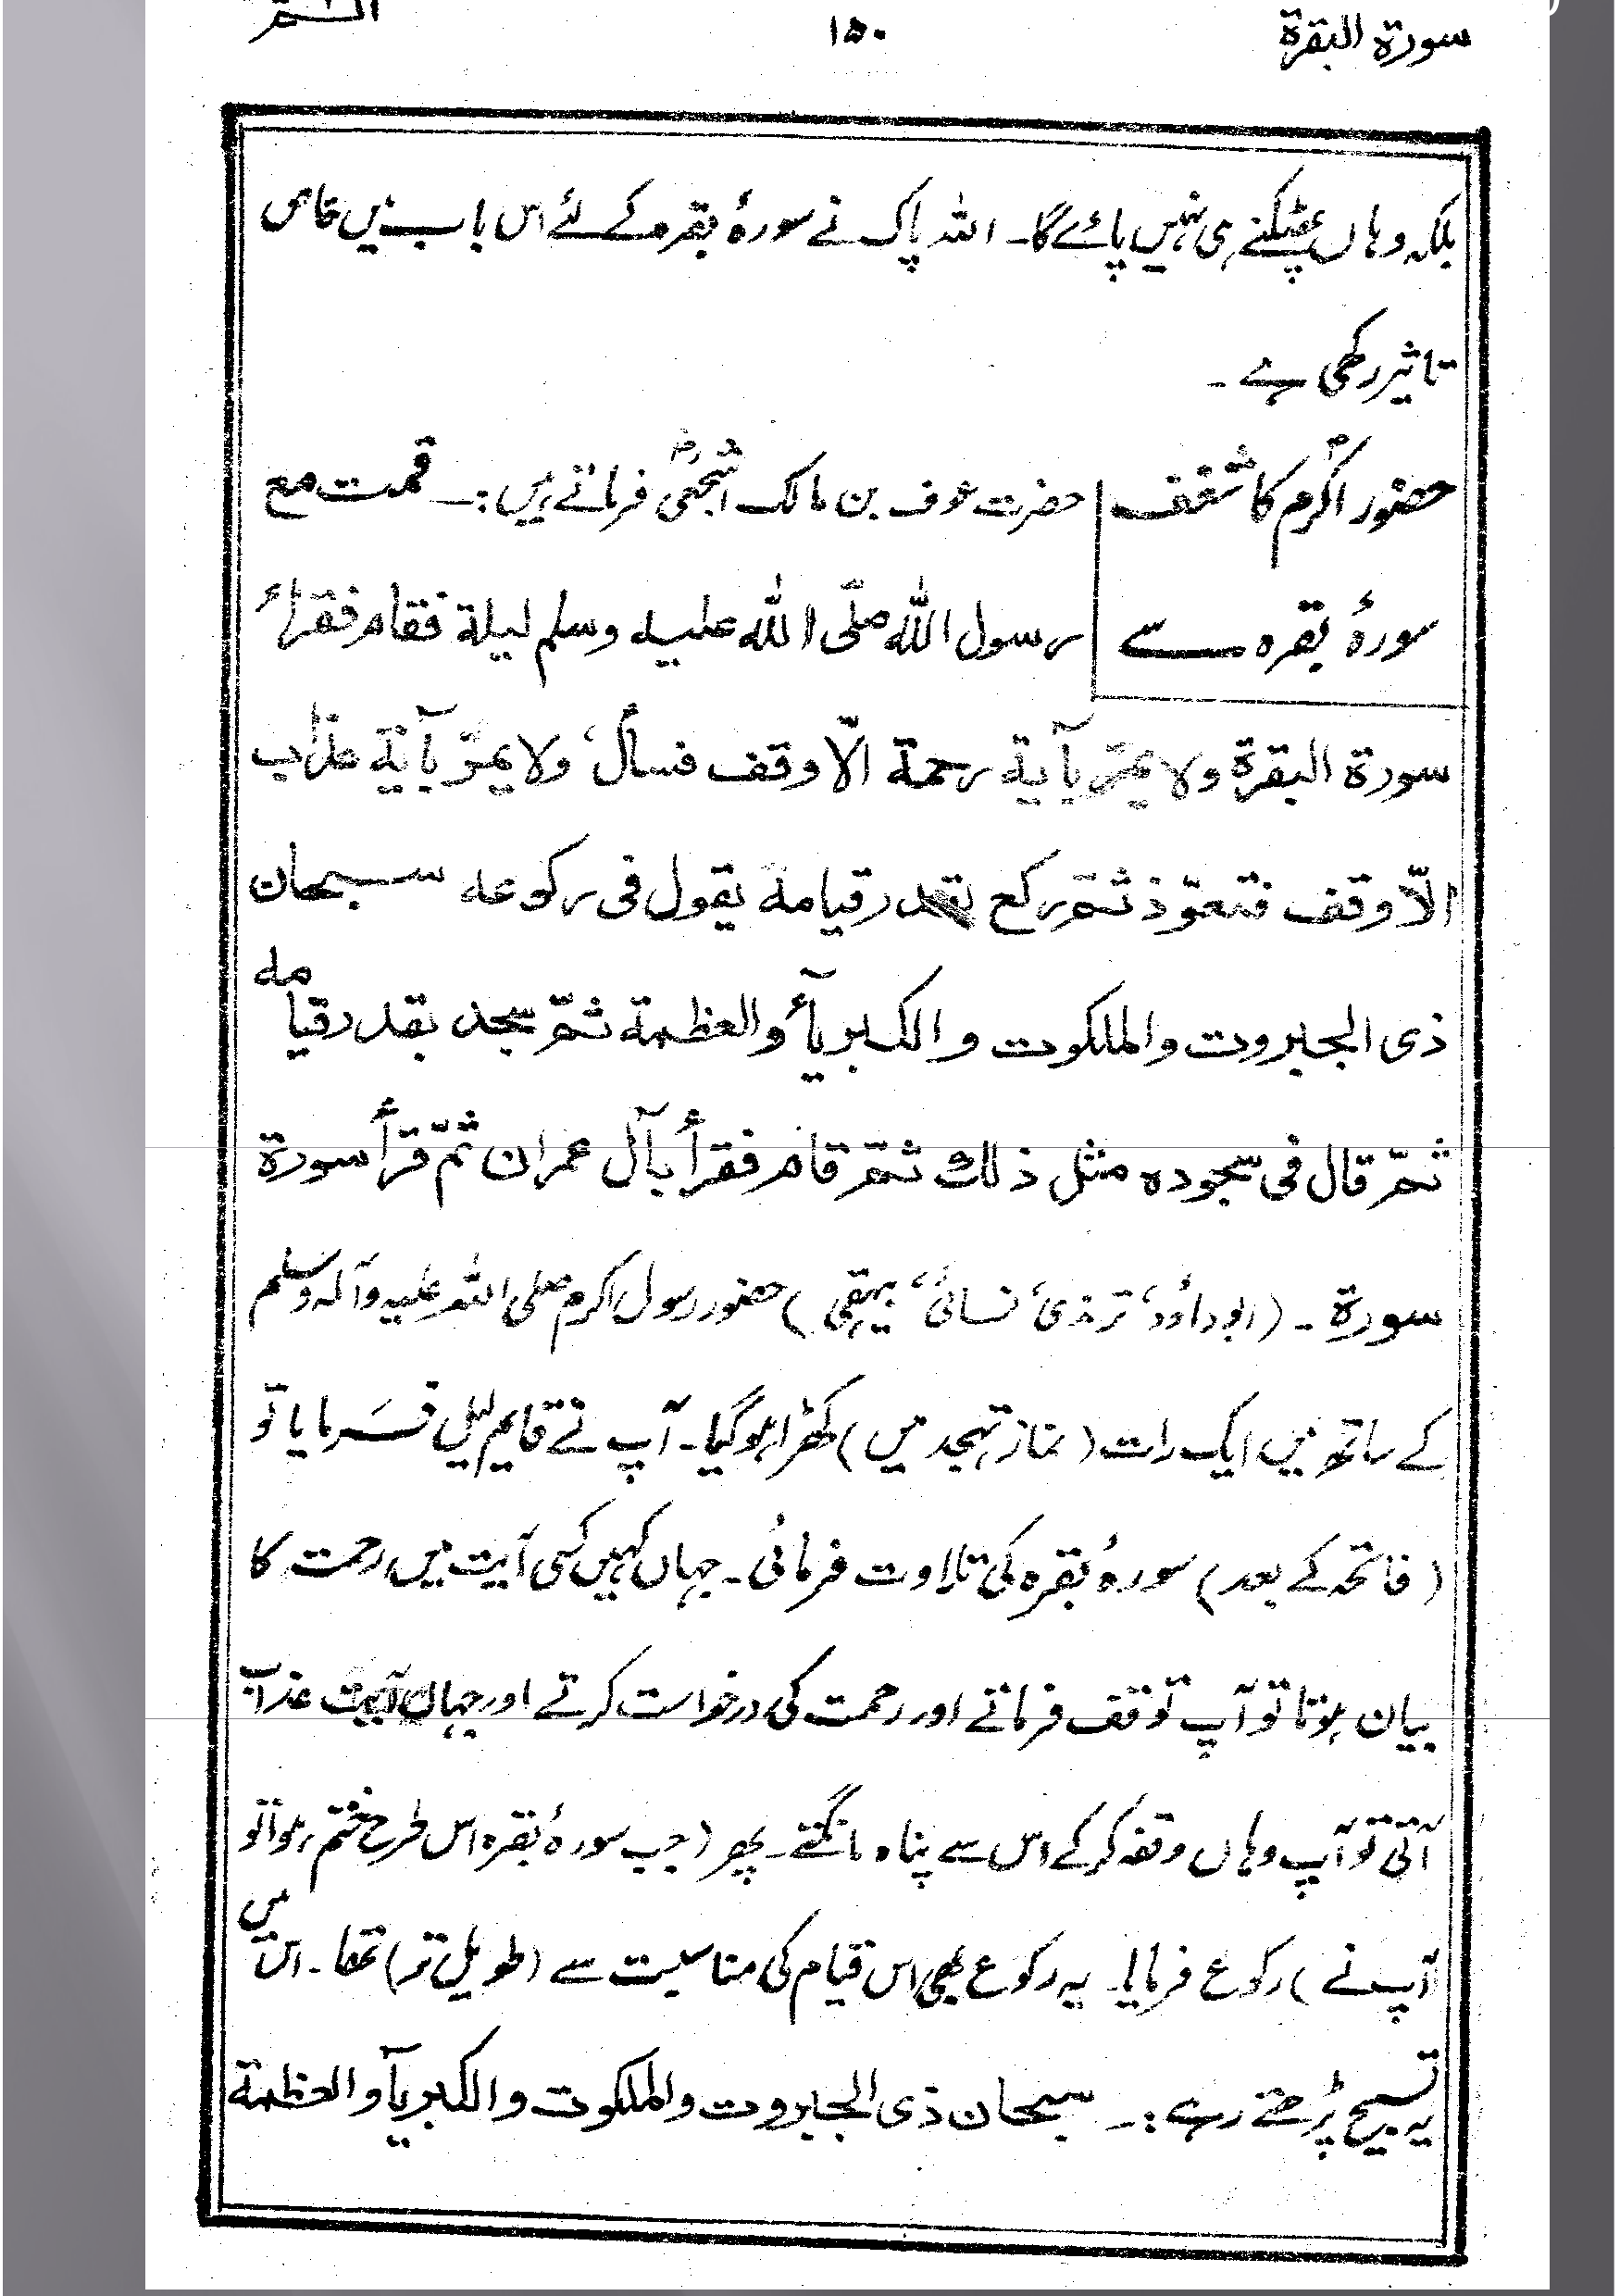 سورة البقرة ۱۵۰ الٓـمّٓ
بلکہ وہاں پھٹکنے ہی نہیں پائے گا۔ اللہ پاک نے سورۂ بقرہ کے لئے اس باب میں خاص
تاثیر رکھی ہے۔
حضور اکرمؐ کا شغف حضرت عوف بن مالک اشجعیؓ فرماتے ہیں:۔ قمت مع
سورۂ بقرہ سے رسول اللّٰه صلّی اللّٰه علیه وسلم لیلة فقام فقرأ
سورة البقرة ولا یمرّ بآیة رحمة الّا وقف فسأل، ولا یمرّ بآیة عذاب
الّا وقف فتعوّذ ثمّ رکع بقدر قیامه یقول فی رکوعه سبحان
ذی الجبروت والملکوت والکبریآء والعظمة ثمّ سجد بقدر قیامه
ثمّ قال فی سجوده مثل ذلك ثمّ قام فقرأ بآل عمران ثمّ قرأ سورة
سورة۔ (ابوداؤد، ترمذی، نسائی، بیہقی) حضور رسول اکرم صلی اللہ علیہ وآلہ وسلم
کے ساتھ میں ایک رات (نماز تہجد میں) کھڑا ہو گیا۔ آپ نے قیام لیل فرمایا تو
(فاتحہ کے بعد) سورۂ بقرہ کی تلاوت فرمائی۔ جہاں کہیں کسی آیت میں رحمت کا
بیان ہوتا تو آپ توقف فرماتے اور رحمت کی درخواست کرتے اور جہاں آیت عذاب
آتی تو آپ وہاں وقفہ کر کے اس سے پناہ مانگتے۔ پھر (جب سورۂ بقرہ اس طرح ختم ہوا تو
آپ نے) رکوع فرمایا۔ یہ رکوع بھی اس قیام کی مناسبت سے (طویل تر) تھا۔ اس میں
یہ تسبیح پڑھتے رہے:۔ سبحان ذی الجبروت والملکوت والکبریآء والعظمة